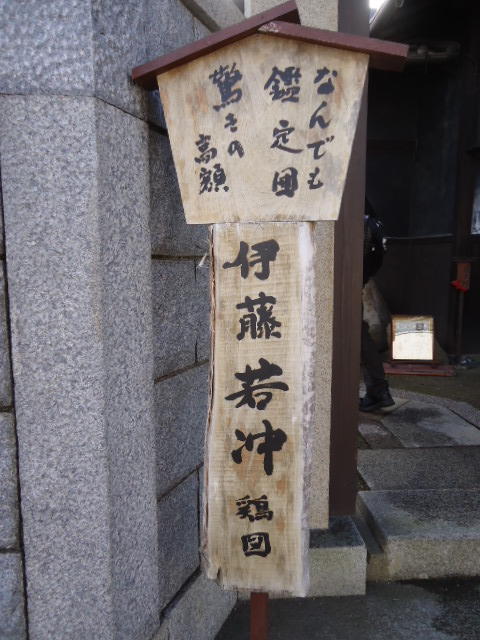 なんでも
鑑定団
驚きの
高額
伊藤若冲
鶏図